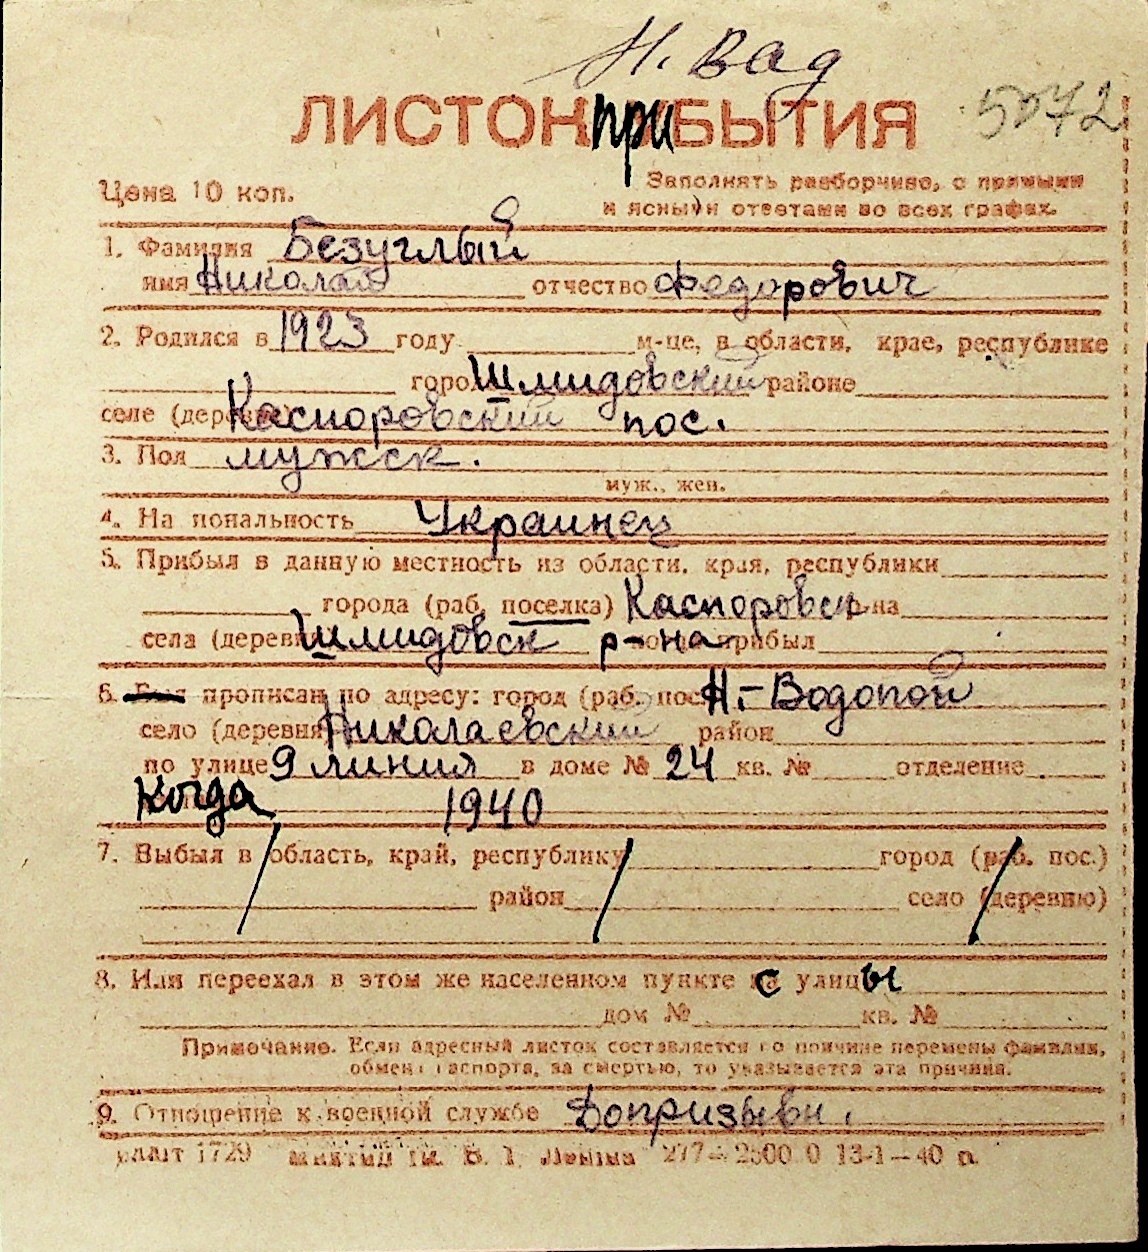 Н. Вад
ЛИСТОК ПРИБЫТИЯ 5072
Цена 10 коп. Заполнять разборчиво, с прямыми
и ясными ответами во всех графах.
1. Фамилия Безуглый
имя Николай отчество Федорович
2. Родился в 1923 году м-це, в области, крае, республике
горо Шмидовский районе
селе (дер Каспоровский пос.
3. Пол мужск.
муж., жен.
4. На иональность Украинец
5. Прибыл в данную местность из области, края, республики
города (раб. поселка) Каспоровск р-на
села (деревни Шмидовск р-на прибыл
6. прописан по адресу: город (раб. пос. Н.-Водопой
село (деревня Николаевский район
по улице 9 линия в доме № 24 кв. № отделение
Когда 1940
7. Выбыл в область, край, республику город (раб. пос.)
район село (деревню)
8. Или переехал в этом же населенном пункте с улицы
дом № кв. №
Примечание. Если адресный листок составляется по причине перемены фамилии,
обмена паспорта, за смертью, то указывается эта причина.
9. Отношение к военной службе Допризывн.
1729 В. І. Леніна 277—2500 0 13-1—40 п.